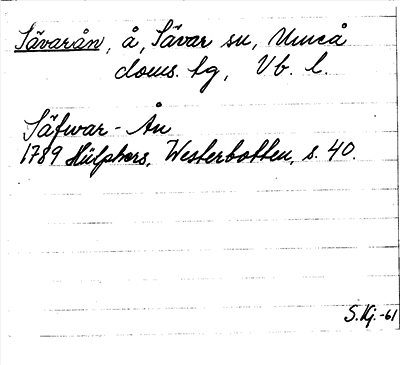 Sävarån, å, Sävar sn, Umeå
doms. tg, Vb. l.
Säfwar-Ån
1789 Hülphers, Westerbotten, s. 40.
S.Kj.-61